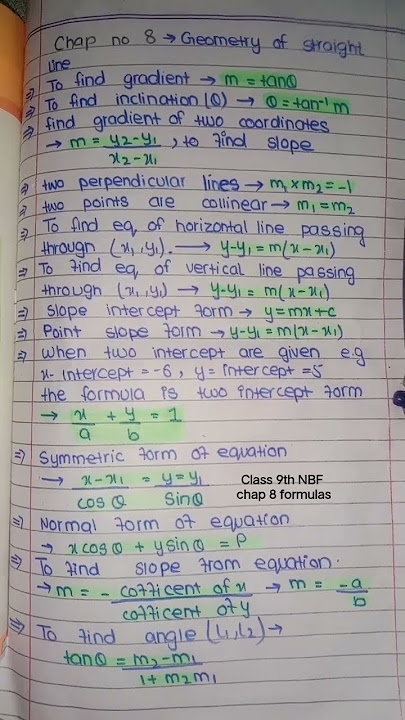 Chap no 8 → Geometry of straight
line
⇒ To find gradient → m = tanθ
⇒ To find inclination (θ) → θ = tan⁻¹ m
⇒ find gradient of two coordinates
→ m = y2-y1 / x2-x1 , to find slope
⇒ two perpendicular lines → m1 × m2 = -1
⇒ two points are collinear → m1 = m2
⇒ To find eq of horizontal line passing
through (x1, y1). → y-y1 = m(x-x1)
⇒ To find eq of vertical line passing
through (x1, y1) → y-y1 = m(x-x1)
⇒ Slope intercept form → y = mx+c
⇒ Point slope form → y-y1 = m(x-x1)
⇒ When two intercept are given e.g
x- intercept = -6 , y= intercept = 5
the formula is two intercept form
→ x/a + y/b = 1
⇒ Symmetric form of equation
→ x-x1 / cosθ = y=y1 / Sinθ
Class 9th NBF
chap 8 formulas
⇒ Normal form of equation
→ x cosθ + y sinθ = P
⇒ To find slope from equation.
→ m = - cofficent of x / cofficent of y → m = -a / b
⇒ To find angle (L1, L2) →
tanθ = m2-m1 / 1+ m2m1